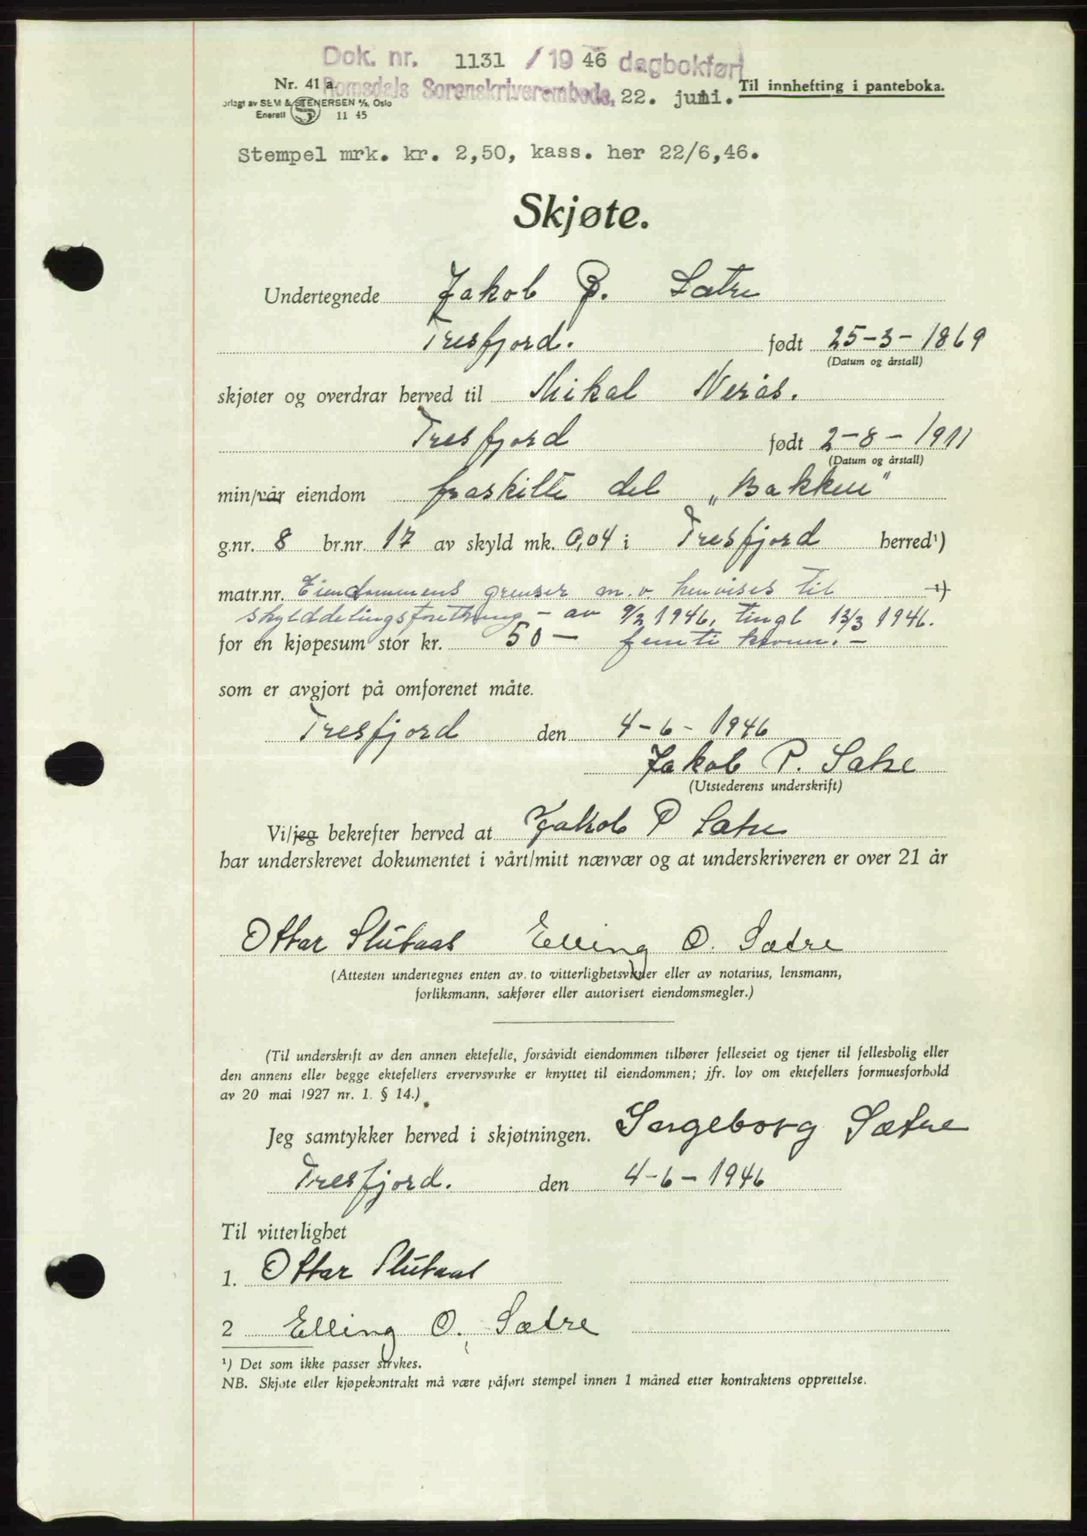 Dok. nr. 1131 / 1946 dagbokført
Nr. 41 a. Romsdals Sorenskriverembede, 22. juni. Til innhefting i panteboka.
Forlagt av SEM & STENERSEN A/S, Oslo
Enerett 11 45
Stempel mrk. kr. 2,50, kass. her 22/6,46.
Skjøte.
Undertegnede Jakob P. Sætre
Tresfjord. født 25-3-1869
(Datum og årstall)
skjøter og overdrar herved til Mikal Nerås.
Tresfjord født 2-8-1911
(Datum og årstall)
min/vår eiendom fraskilte del „Bakken"
g.nr. 8 br.nr. 17 av skyld mk. 0,04 i Tresfjord herred¹)
matr.nr. Eiendommens grenser m.v henvises til ¹)
skylddelingsforretning - av 9/2 1946, tingl 12/3 1946.
for en kjøpesum stor kr. 50 - femti kroner. -
som er avgjort på omforenet måte.
Tresfjord den 4-6-1946
Jakob P. Sætre
(Utstederens underskrift)
Vi/jeg bekrefter herved at Jakob P Sætre
har underskrevet dokumentet i vårt/mitt nærvær og at underskriveren er over 21 år
Ottar Elling O. Sætre
(Attesten undertegnes enten av to vitterlighetsvitner eller av notarius, lensmann,
forliksmann, sakfører eller autorisert eiendomsmegler.)
(Til underskrift av den annen ektefelle, forsåvidt eiendommen tilhører felleseiet og tjener til fellesbolig eller
den annens eller begge ektefellers ervervsvirke er knyttet til eiendommen; jfr. lov om ektefellers formuesforhold
av 20 mai 1927 nr. 1. § 14.)
Jeg samtykker herved i skjøtningen. Ingeborg Sætre
Tresfjord. den 4-6-1946
Til vitterlighet
1. Ottar
2 Elling O. Sætre
¹) Det som ikke passer strykes.
NB. Skjøte eller kjøpekontrakt må være påført stempel innen 1 måned etter kontraktens opprettelse.